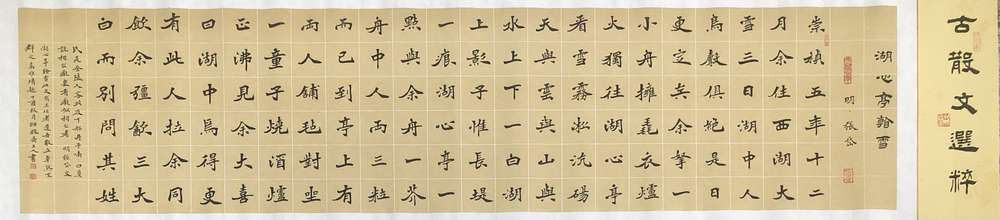 古散文選粹
湖心亭翰雪
明 張岱
崇禎五年十二
月余住西湖大
雪三日湖中人
鳥聲俱絕是日
更定矣余拏一
小舟擁毳衣爐
火獨往湖心亭
看雪霧凇沆碭
天與雲與山與
水上下一白湖
上影子惟長堤
一痕湖心亭一
點與余舟一芥
舟中人兩三粒
而已到亭上有
兩人鋪氈對坐
一童子燒酒爐
正沸見余大喜
曰湖中焉得更
有此人拉余同
飲余彊飲三大
白而別問其姓
氏是金陵人客此及下船舟子喃曰莫
說相公癡更有癡似相公者 明張岱文